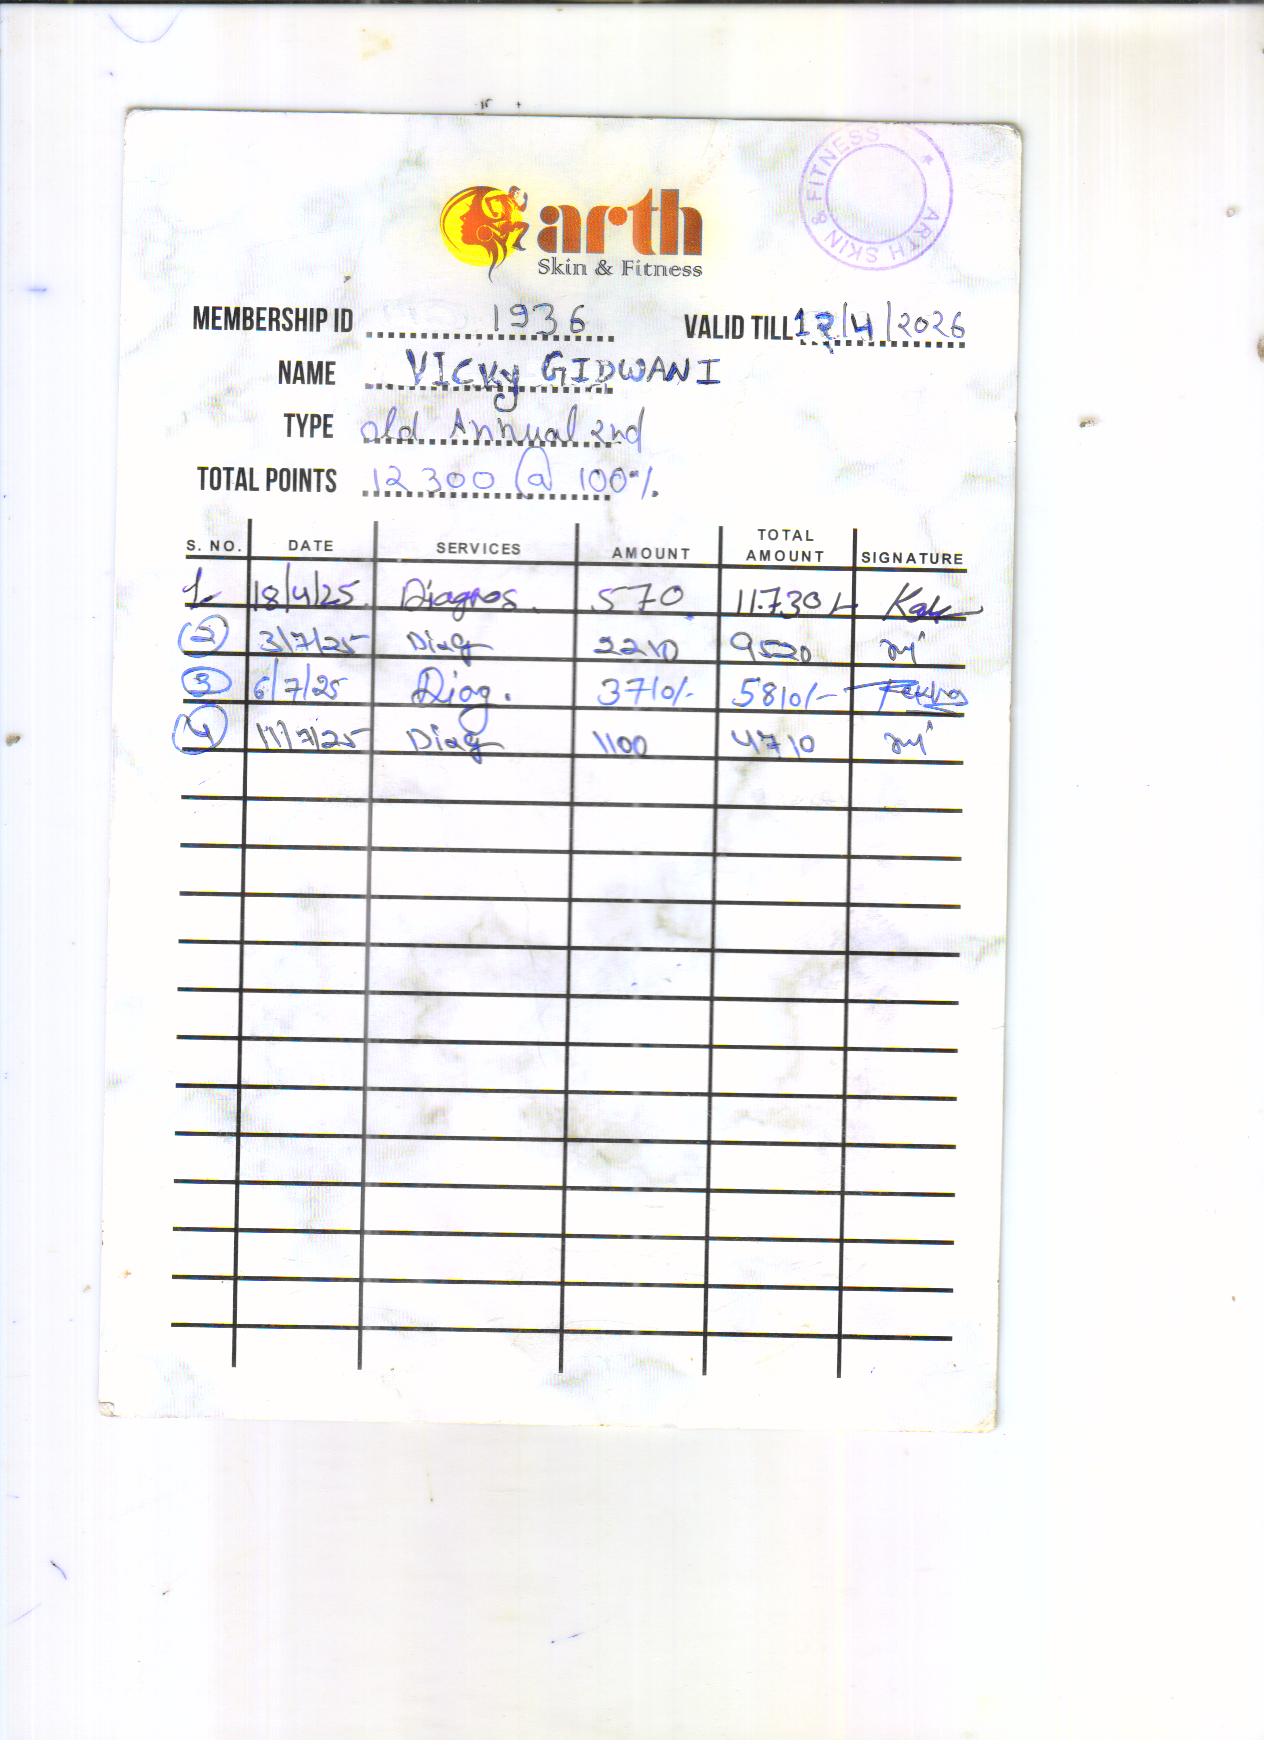 arth
Skin & Fitness
ARTH SKIN & FITNESS
MEMBERSHIP ID 1936 VALID TILL 12/4/2026
NAME VICKY GIDWANI
TYPE old Annual 2nd
TOTAL POINTS 12300 @ 100%
S. NO. DATE SERVICES AMOUNT TOTAL AMOUNT SIGNATURE
1. 18/4/25 Diagnos. 570 11730/-
2 3/7/25 Diag 2210 9520
3 6/7/25 Diag. 3710/- 5810/-
4 11/7/25 Diag 1100 4710